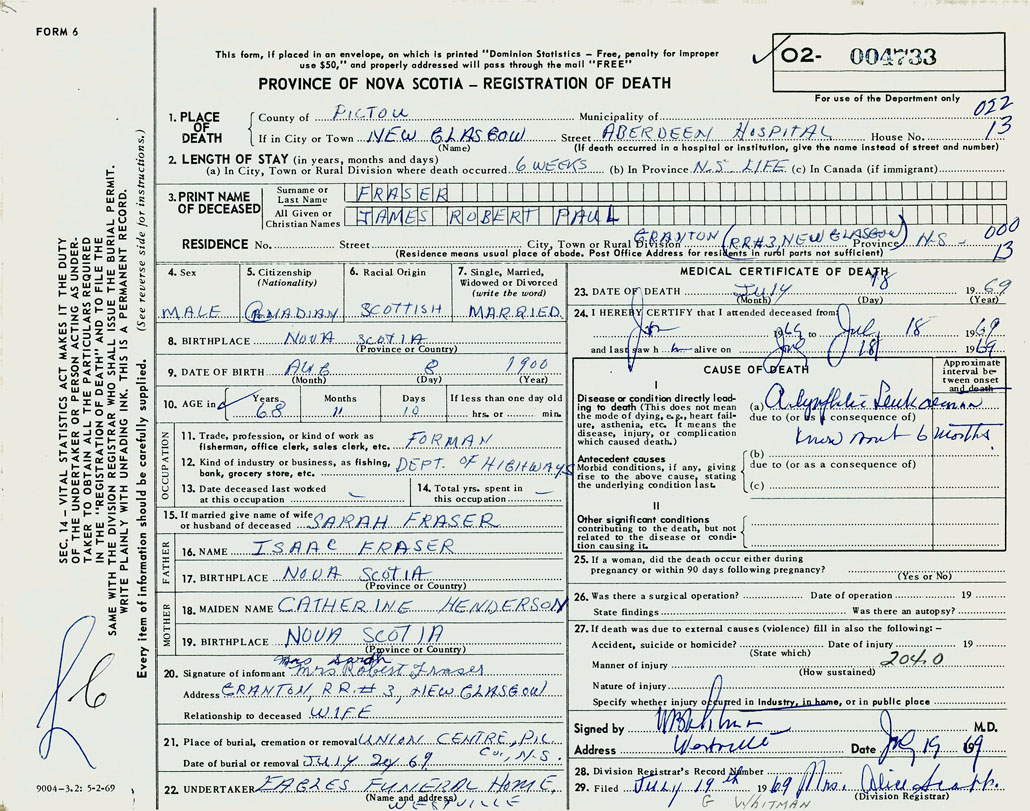 FORM 6
This form, if placed in an envelope, on which is printed "Dominion Statistics – Free, penalty for improper
use $50," and properly addressed will pass through the mail "FREE"
PROVINCE OF NOVA SCOTIA – REGISTRATION OF DEATH
O2- 004733
For use of the Department only
022
13
1. PLACE OF DEATH
County of PICTOU Municipality of
If in City or Town NEW GLASGOW Street ABERDEEN HOSPITAL House No.
(Name) (If death occurred in a hospital or institution, give the name instead of street and number)
2. LENGTH OF STAY (in years, months and days)
(a) In City, Town or Rural Division where death occurred 6 WEEKS (b) In Province N.S. LIFE (c) In Canada (if immigrant)
3. PRINT NAME OF DECEASED
Surname or Last Name FRASER
All Given or Christian Names JAMES ROBERT PAUL
RESIDENCE No. Street City, Town or Rural Division GRANTON (RR#3, NEW GLASGOW) Province N-S-
000
13
(Residence means usual place of abode. Post Office Address for residents in rural parts not sufficient)
4. Sex
MALE
5. Citizenship
(Nationality)
CANADIAN
6. Racial Origin
SCOTTISH
7. Single, Married,
Widowed or Divorced
(write the word)
MARRIED
8. BIRTHPLACE NOVA SCOTIA
(Province or Country)
9. DATE OF BIRTH AUG 8 1900
(Month) (Day) (Year)
10. AGE in Years Months Days If less than one day old
68 11 10 hrs. or min.
OCCUPATION
11. Trade, profession, or kind of work as
fisherman, office clerk, sales clerk, etc. FORMAN
12. Kind of industry or business, as fishing,
bank, grocery store, etc. DEPT. OF HIGHWAYS
13. Date deceased last worked
at this occupation –
14. Total yrs. spent in
this occupation –
15. If married give name of wife
or husband of deceased SARAH FRASER
FATHER
16. NAME ISAAC FRASER
17. BIRTHPLACE NOVA SCOTIA
(Province or Country)
MOTHER
18. MAIDEN NAME CATHERINE HENDERSON
19. BIRTHPLACE NOVA SCOTIA
(Province or Country)
Mrs Sarah
20. Signature of informant Mrs Robert Fraser
Address GRANTON, R.R.# 3, NEW GLASGOW
Relationship to deceased WIFE
21. Place of burial, cremation or removal UNION CENTRE, PIC
Co., N.S.
Date of burial or removal JULY 20 69
22. UNDERTAKER EAGLES FUNERAL HOME,
(Name and address)
WESTVILLE
MEDICAL CERTIFICATE OF DEATH
23. DATE OF DEATH July 18 1969
(Month) (Day) (Year)
24. I HEREBY CERTIFY that I attended deceased from:
1969 to July 18 1969
and last saw h alive on July 18 1969
CAUSE OF DEATH
Approximate
interval be-
tween onset
and death
I
Disease or condition directly lead-
ing to death (This does not mean
the mode of dying, e.g., heart fail-
ure, asthenia, etc. It means the
disease, injury, or complication
which caused death.)
(a)
due to (or as a consequence of)
6 months
Antecedent causes
Morbid conditions, if any, giving
rise to the above cause, stating
the underlying condition last.
(b)
due to (or as a consequence of)
(c)
II
Other significant conditions
contributing to the death, but not
related to the disease or condi-
tion causing it.
25. If a woman, did the death occur either during
pregnancy or within 90 days following pregnancy?
(Yes or No)
26. Was there a surgical operation? Date of operation 19
State findings Was there an autopsy?
27. If death was due to external causes (violence) fill in also the following: –
Accident, suicide or homicide? Date of injury 19
(State which)
2040
Manner of injury
(How sustained)
Nature of injury
Specify whether injury occurred in Industry, in home, or in public place
Signed by M.D.
Address Westville Date July 19 69
28. Division Registrar's Record Number
29. Filed July 19th 1969 Mrs. Alice
(Division Registrar)
G WHITMAN
SEC. 14 – VITAL STATISTICS ACT MAKES IT THE DUTY
OF THE UNDERTAKER OR PERSON ACTING AS UNDER-
TAKER TO OBTAIN ALL THE PARTICULARS REQUIRED
IN THE "REGISTRATION OF DEATH" AND TO FILE THE
SAME WITH THE DIVISION REGISTRAR WHO SHALL ISSUE THE BURIAL PERMIT.
WRITE PLAINLY WITH UNFADING INK. THIS IS A PERMANENT RECORD.
Every item of information should be carefully supplied. (See reverse side for instructions.)
9004-3.2: 5-2-69